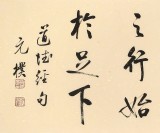 之行始
於足下
道德經句
元樸